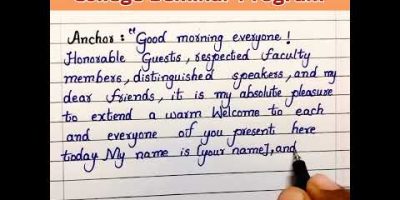 College Seminar Program
Anchor : "Good morning everyone!
Honorable Guests, respected faculty
members, distinguished speakers, and my
dear friends, it is my absolute pleasure
to extend a warm Welcome to each
and everyone of you present here
today My name is [your name], and